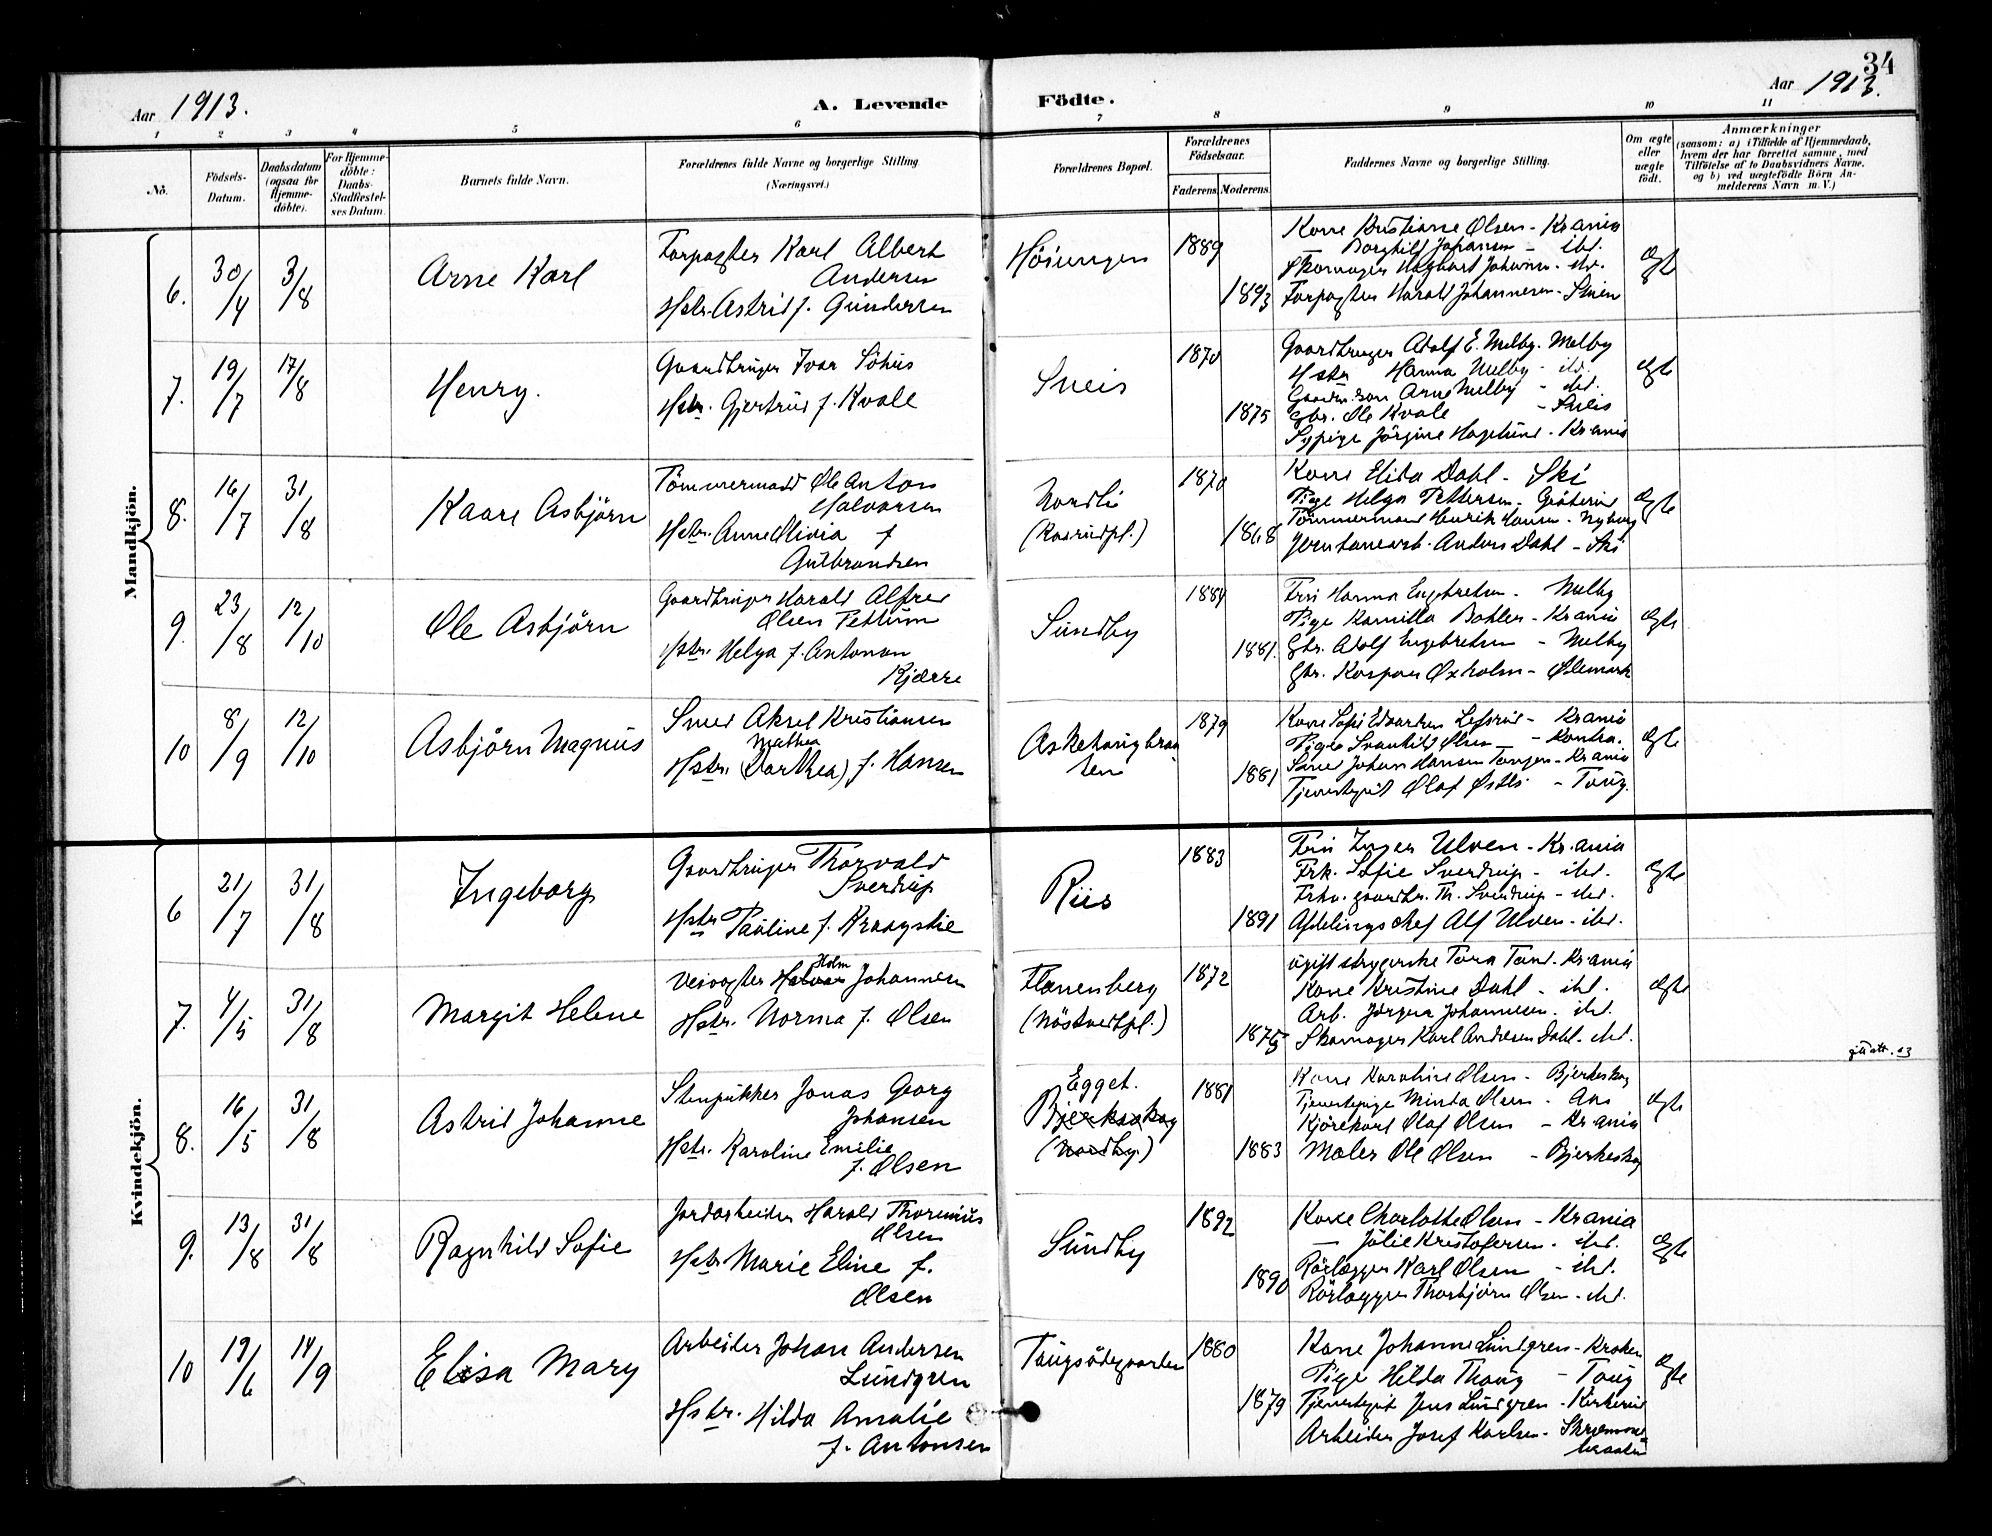 34
Aar 1913.
A. Levende
Födte.
Aar 1913.
1 2 3 4 5 6 7 8 9 10 11
No.
Födsels-
Datum.
Daabsdatum
(ogsaa for
Hjemme-
döbte).
For Hjemme-
döbte:
Daabs-
Stadfæstel-
ses Datum.
Barnets fulde Navn.
Forældrenes fulde Navne og borgerlige Stilling
(Næringsvei.)
Forældrenes Bopæl.
Forældrenes
Födselsaar.
Faderens. Moderens.
Faddernes Navne og borgerlige Stilling.
Om ægte
eller
uægte
födt.
Anmærkninger
(saasom: a) i Tilfælde af Hjemmedaab,
hvem der har forrettet samme, med
Tilföielse af to Daabsvidners Navne,
og b) ved uægtefödte Börn An-
melderens Navn m. V.)
Mandkjön.
6. 30/4 3/8 Arne Karl
Forpagter Karl Albert
Andersen
Hstr. Astrid f. Gundersen
Höiungen
1889
1893
Kone Kristiane Olsen - Krania
— Borghild Johansen - ibd.
Skomager Hagbart Johanns. - ibd.
Forpagter Harald Johannesen -
Ægte
7. 19/7 17/8 Henry.
Gaardbruger Ivar Söhus
Hstr. Gjertrud f. Kvale
Sneis
1870
1875
Gaardbruger Adolf E. Melby. Melby
Hstr Hanna Melby - ibd.
Arne Melby - ibd.
Gbr. Ole Kvale - Sneis
Sypige Jörgine Haglund - Krania
Ægte
8. 16/7 31/8 Kaare Asbjörn
Tömmermand Ole Anton
Halvorsen
Hstr. Anne Olivia f
Gulbrandsen
Nordli
(Kasrudpl.)
1870
1868
Kone Elida Dahl - Ski
Pige Helga Pettersen -
Tömmermand Henrik Hansen - Nyborg
Anders Dahl - Ski
Ægte
9. 23/8 12/10 Ole Asbjörn
Gaardbruger Harald Alfred
Olsen Pettum
Hstr. Helga f. Antonsen
Kjærre
Sundby
1884
1881.
Fru Hanna Engebretsen - Melby
Pige Kamilla Bohler - Krania
Gbr. Adolf Engebretsen - Melby
Gbr. Kaspar Oxholm -
Ægte
10 8/9 12/10 Asbjörn Magnus
Smed Aksel Kristiansen
Mathea
Hstr. (Dorthea) f. Hansen
Askehaugbraa-
ten
1879
1881
Kone Sofie Edvardsen - Krania
Pige Svanhild Olsen -
Smed Johan Hansen Tangen - Krania
Tjenestegut Olaf Östli - Taug.
Ægte
Kvindekjön.
6 21/7 31/8 Ingeborg
Gaardbruger Thorvald
Sverdrup
Hstr Pauline f.
Riis
1883
1891
Fru Inger Ulven - Kr.ania
Frk. Sofie Sverdrup - ibd.
Frhv. gaardbr. Th. Sverdrup - ibd.
Afdelingschef Alf Ulven - ibd.
Ægte
7. 4/5 31/8 Margit Helene
Holm
Veivogter Halvor Johannesen
Hstr. Norma f. Olsen
Flanenberg
(Nöstvedtpl.)
1872
1875
Ugift strygerske Tora Tand. Krania
Kone Kristine Dahl - ibd.
Arb. Jörgen Johannesen. ibd.
Skomager Karl Andresen Dahl - ibd.
Ægte
8. 16/5 31/8 Astrid Johanne
Stenpukker Jonas Georg
Johansen
Hstr. Karoline Emilie
f. Olsen
Egget.
Bjerkeskog
(Nordby.)
1881
1883
Kone Karoline Olsen - Bjerkeskog
Tjenestepige Minda Olsen - Aas
Kjörekarl Olaf Olsen - Krania
Maler Ole Olsen - Bjerkeskog
Ægte
9. 13/8 31/8 Ragnhild Sofie
Jordarbeider Harald Thorenius
Olsen
Hstr Marie Eline f.
Olsen
Sundby
1892
1890
Kone Charlotte Olsen - Krania
— Julie Kristofersen - ibd.
Rörlægger Karl Olsen - ibd.
Rörlægger Thorbjörn Olsen - ibd.
Ægte
10 19/6 14/9 Elisa Mary
Arbeider Johan Andersen
Lundgren
Hstr. Hilda Amalie
f. Antonsen
Taugsödegaarden
1880
1879
Kone Johanne Lundgren - Kroken
Pige Hilda Thaug - Taug
Tjenestegut Jens Lundgren - Kirkerud
Arbeider Josef Karlsen -
Ægte